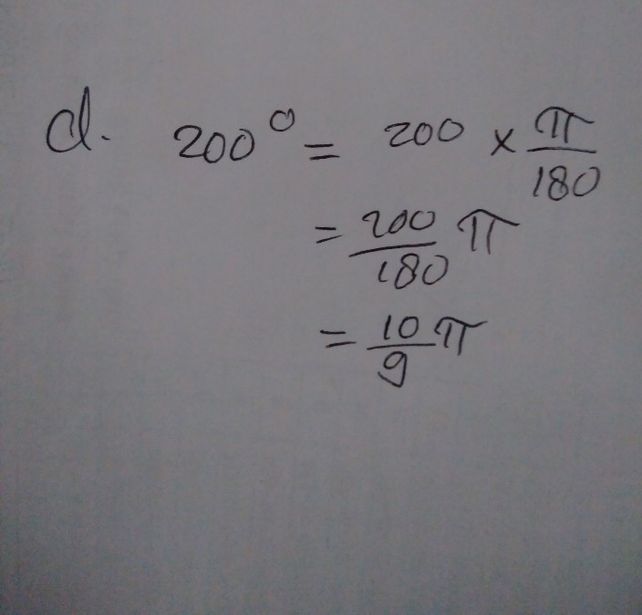 d. 200° = 200 × π/180
= 200/180 π
= 10/9 π